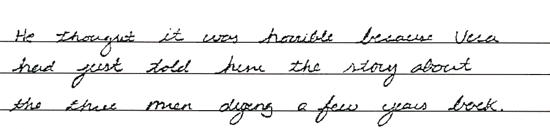 He thought it was horrible because Vera
had just told him the story about
the three men dying a few years back.